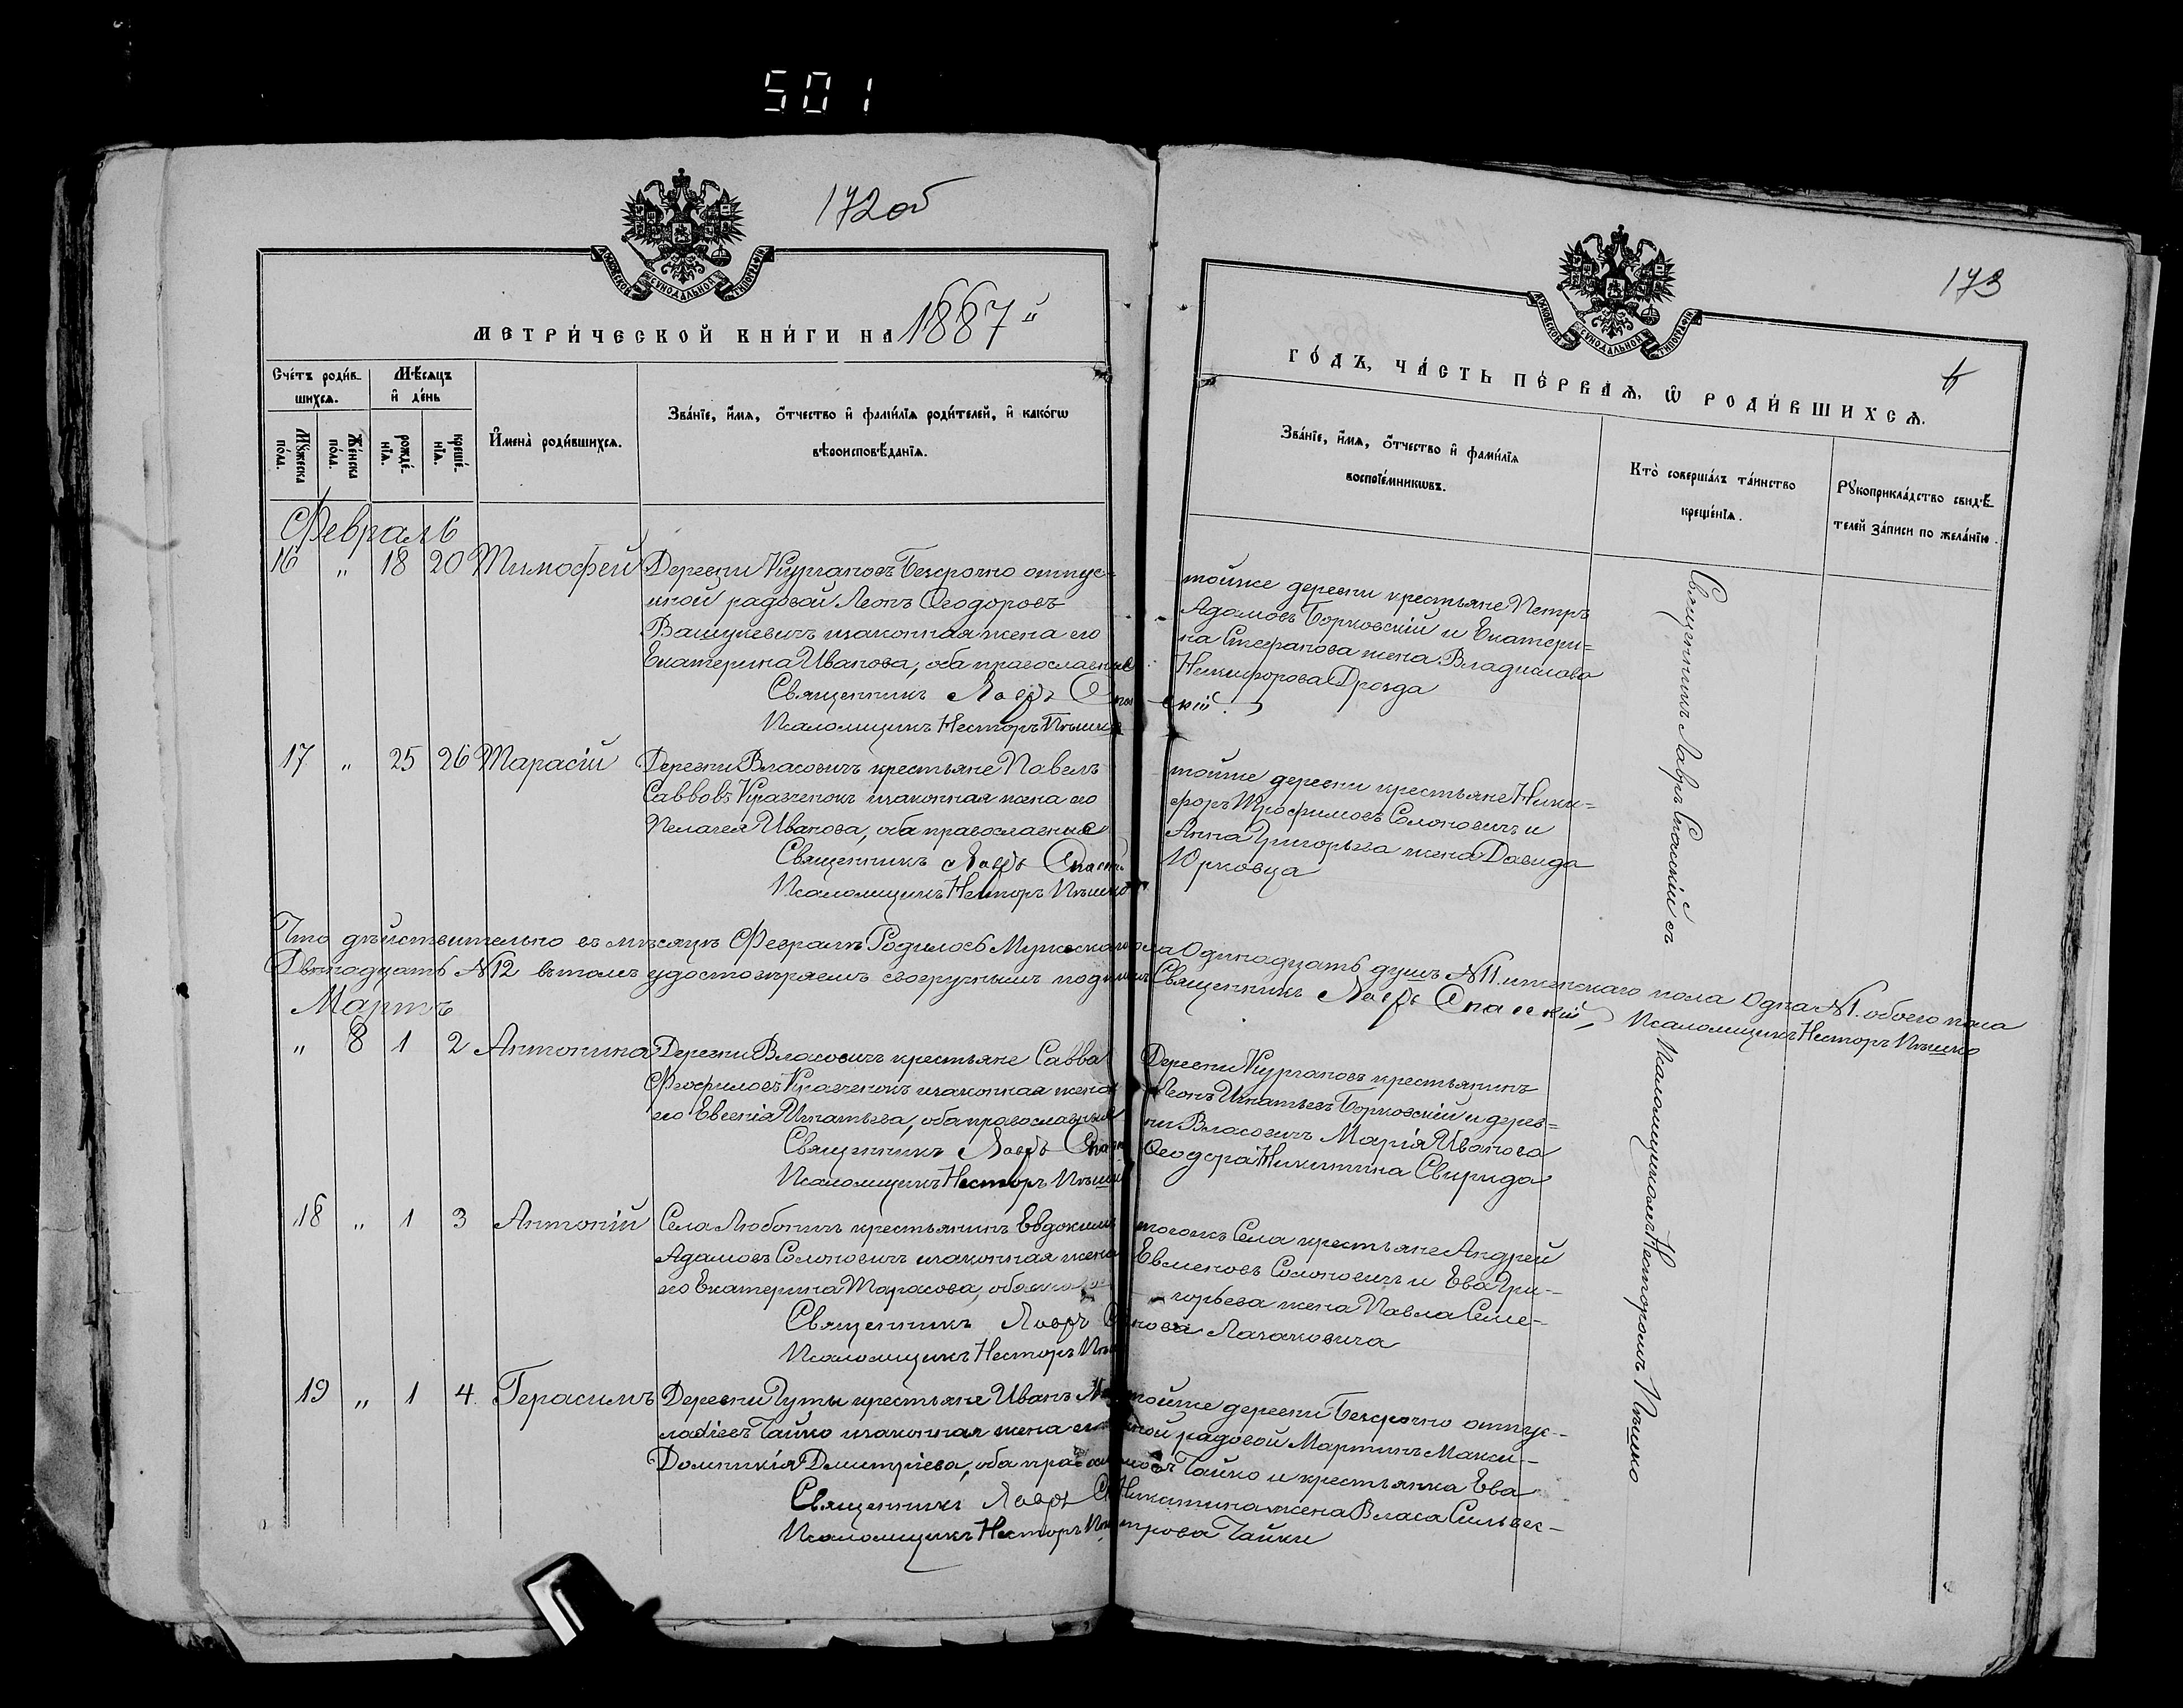 501
172 об
МОСКОВСКОЙ СѴНОДАЛЬНОЙ ТИПОГРАФІИ
МЕТРИ́ЧЕСКОЙ КНИ́ГИ НА 1887й
Сче́тъ роди́в-
шихся.
Мѣ́сяцъ
и҆ де́нь
И҆мена̀ роди́вшихся.
Зва́нїе, и҆́мя, ѻ҆́тчество и҆ фами́лїя роди́телей, и҆ како́гѡ
вѣроисповѣ́данїя.
Мꙋ́жеска
по́ла.
Же́нска
по́ла.
рожде́-
нїя.
креще́-
нїя.
Февраль
16 " 18 20 Тимофей Деревни Кургановъ безсрочно отпус-
кной рядовой Леонъ Ѳеодоровъ
Вашукевичъ и законная жена его
Екатерина Иванова, оба православные
Священникъ Лавръ Спасскій
Псаломщикъ Несторъ Пѣшко
17 " 25 26 Тарасій Деревни Власовичъ крестьяне Павелъ
Саввовъ Кравченокъ и законная жена его
Пелагея Иванова, оба православные
Священникъ Лавръ Спасскій
Псаломщикъ Несторъ Пѣшко
Что дѣйствительно въ мѣсяцѣ Февралѣ Родилось Мужескаго пола Одинадцать душъ №11. и женскаго пола Одна №1. обоего пола
Двѣнадцать №12 въ томъ удостовѣряемъ своеручнымъ подписомъ Священникъ Лавръ Спасскій, Псаломщикъ Несторъ Пѣшко
Мартъ
" 8 1 2 Антонина Деревни Власовичъ крестьяне Савва
Ѳеофиловъ Кравченокъ и законная жена
его Евгенія Игнатьева, оба православные
Священникъ Лавръ
Псаломщикъ Несторъ Пѣшко
18 " 1 3 Антоній Села Любоничъ крестьянинъ Евдокимъ
Адамовъ Солоновичъ и законная жена
его Екатерина Тарасова, оба
Священникъ Лавръ
Псаломщикъ Несторъ
19 " 1 4 Герасимъ Деревни Гуты крестьяне Иванъ
Чайко и законная жена его
Домникія Дмитріева, оба
Священникъ Лавръ
Псаломщикъ Несторъ
173
МОСКОВСКОЙ СѴНОДАЛЬНОЙ ТИПОГРАФІИ
ГО́ДЪ, ЧА́СТЬ ПЕ́РВАЯ, Ѡ҆ РОДИ́ВШИХСЯ.
Зва́нїе, и҆́мя, ѻ҆́тчество и҆ фами́лїя
воспрїе́мникѡвъ.
Кто̀ соверша́лъ та́инство
креще́нїя.
Рꙋкоприкла́дство свидѣ́-
телей за́писи по жела́нїю.
тойже деревни крестьяне Петръ
Адамовъ Борковскій и Екатери=
на Стефанова жена Владислава
Никифорова Дрозда
тойже деревни крестьяне Ники=
форъ Трофимовъ Солоновичъ и
Анна Григорьева жена Давида
Юрковца
Деревни Кургановъ крестьянинъ
Леонъ Игнатьевъ Борковскій и дерев=
ни Власовичъ Марія Иванова
Ѳеодора Никитина Свирида
тогожъ Села крестьяне Андрей
Евменовъ Солоновичъ и Ева Гри-
горьева жена Павла Семе-
нова
тойже деревни безсрочно отпус-
кной рядовой Мартинъ Макси-
мовъ Чайко и крестьянка Ева
Никитина жена Власа Сильвес-
трова Чайки
Священникъ Лавръ Спасскій съ
Псаломщикомъ Несторомъ Пѣшко